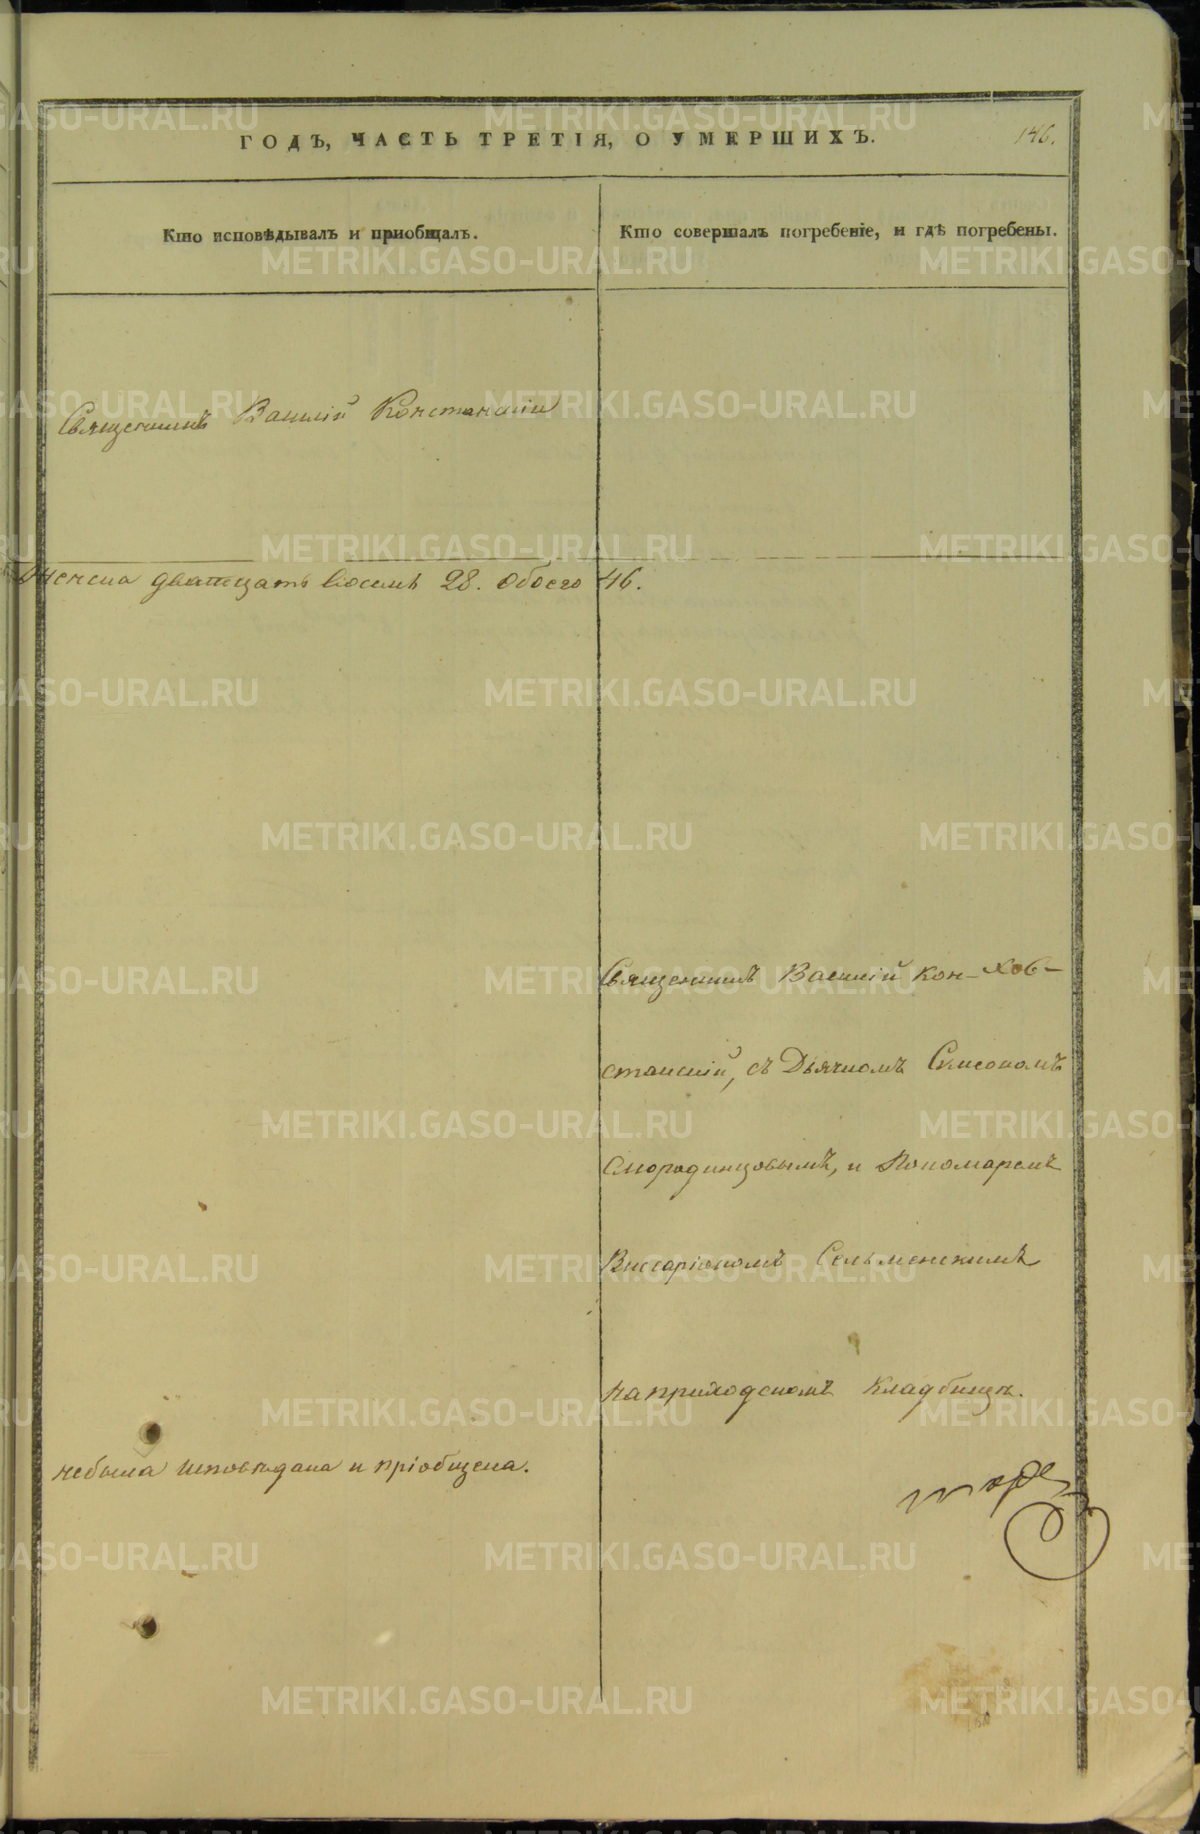 ГОДЪ, ЧАСТЬ ТРЕТІЯ, О УМЕРШИХЪ.
146.
Кто исповѣдывалъ и приобщалъ.
Кто совершалъ погребеніе, и гдѣ погребены.
Священникъ Василій Констанскій
Женска дватцать восемь 28. Обоего 46.
Священникъ Василій Кон-
станскій, съ Дьячкомъ Симеономъ
Смородинцовымъ, и Пономаремъ
Висаріономъ Сельменскимъ
на приходскомъ кладбищѣ.
небыла исповѣдана и пріобщена.
METRIKI.GASO-URAL.RU